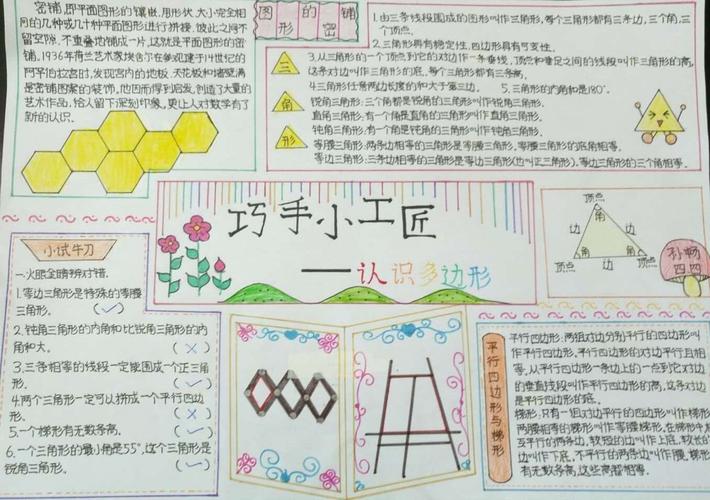 密铺,即平面图形的镶嵌,用形状、大小完全相
同的几种或几种平面图形进行拼接,彼此之间不
留空隙、不重叠地铺成一片,这就是平面图形的密
铺。1936年荷兰艺术家埃舍尔在参观建于14世纪的
阿罕伯拉宫时,发现宫内的地板、天花板和墙壁满
是密铺图案的装饰,他因而得到启发,创造了大量的
艺术作品,给人留下深刻印象,更让人对数学有了
新的认识。
图形的密铺
1.由三条线段围成的图形叫作三角形,每个三角形都有三条边,三个角,三
个顶点。
2.三角形具有稳定性,四边形具有可变性。
3.从三角形的一个顶点到它的对边作一条垂线,顶点和垂足之间的线段叫作三角形的高,
这条对边叫作三角形的底。每个三角形都有三条高。
4.三角形任意两边长度的和大于第三边。 5.三角形的内角和是180°。
锐角三角形:三个都是锐角的三角形叫作锐角三角形。
直角三角形:有一个角是直角的三角形叫作直角三角形。
钝角三角形:有一个角是钝角的三角形叫作钝角三角形。
等腰三角形:两条边相等的三角形是等腰三角形,等腰三角形的底角相等。
等边三角形:三条边相等的三角形是等边三角形(也叫正三角形)。等边三角形的三个角相等。
三
角
形
巧手小工匠
——认识多边形
顶点
角
边 边
角 角
顶点 边 顶点
孙畅
四四
小试牛刀
一.火眼金睛辨对错。
1.等边三角形是特殊的等腰
三角形。 (✓)
2.钝角三角形的内角和比锐角三角形的内
角和大。 (×)
3.三条相等的线段一定能围成一个正三角
形。 (✓)
4.两个三角形一定可以拼成一个平行四边
形。 (×)
5.一个梯形有无数条高。 (✓)
6.一个三角形的最小角是55°,这个三角形是
锐角三角形。 (✓)
平行四边形与梯形
平行四边形:两组对边分别平行的四边形叫
作平行四边形,平行四边形的对边平行且相
等,从平行四边形一条边上的一点到它对边
的垂直线段叫作平行四边形的高,这条对边
是平行四边形的底。
梯形:只有一组对边平行的四边形叫作梯形
两腰相等的梯形叫作等腰梯形。在梯形中
互平行的两条边,较短的边叫作上底,较长的
边叫作下底,不平行的两条边叫作腰,梯形
有无数条高,这些高都相等。